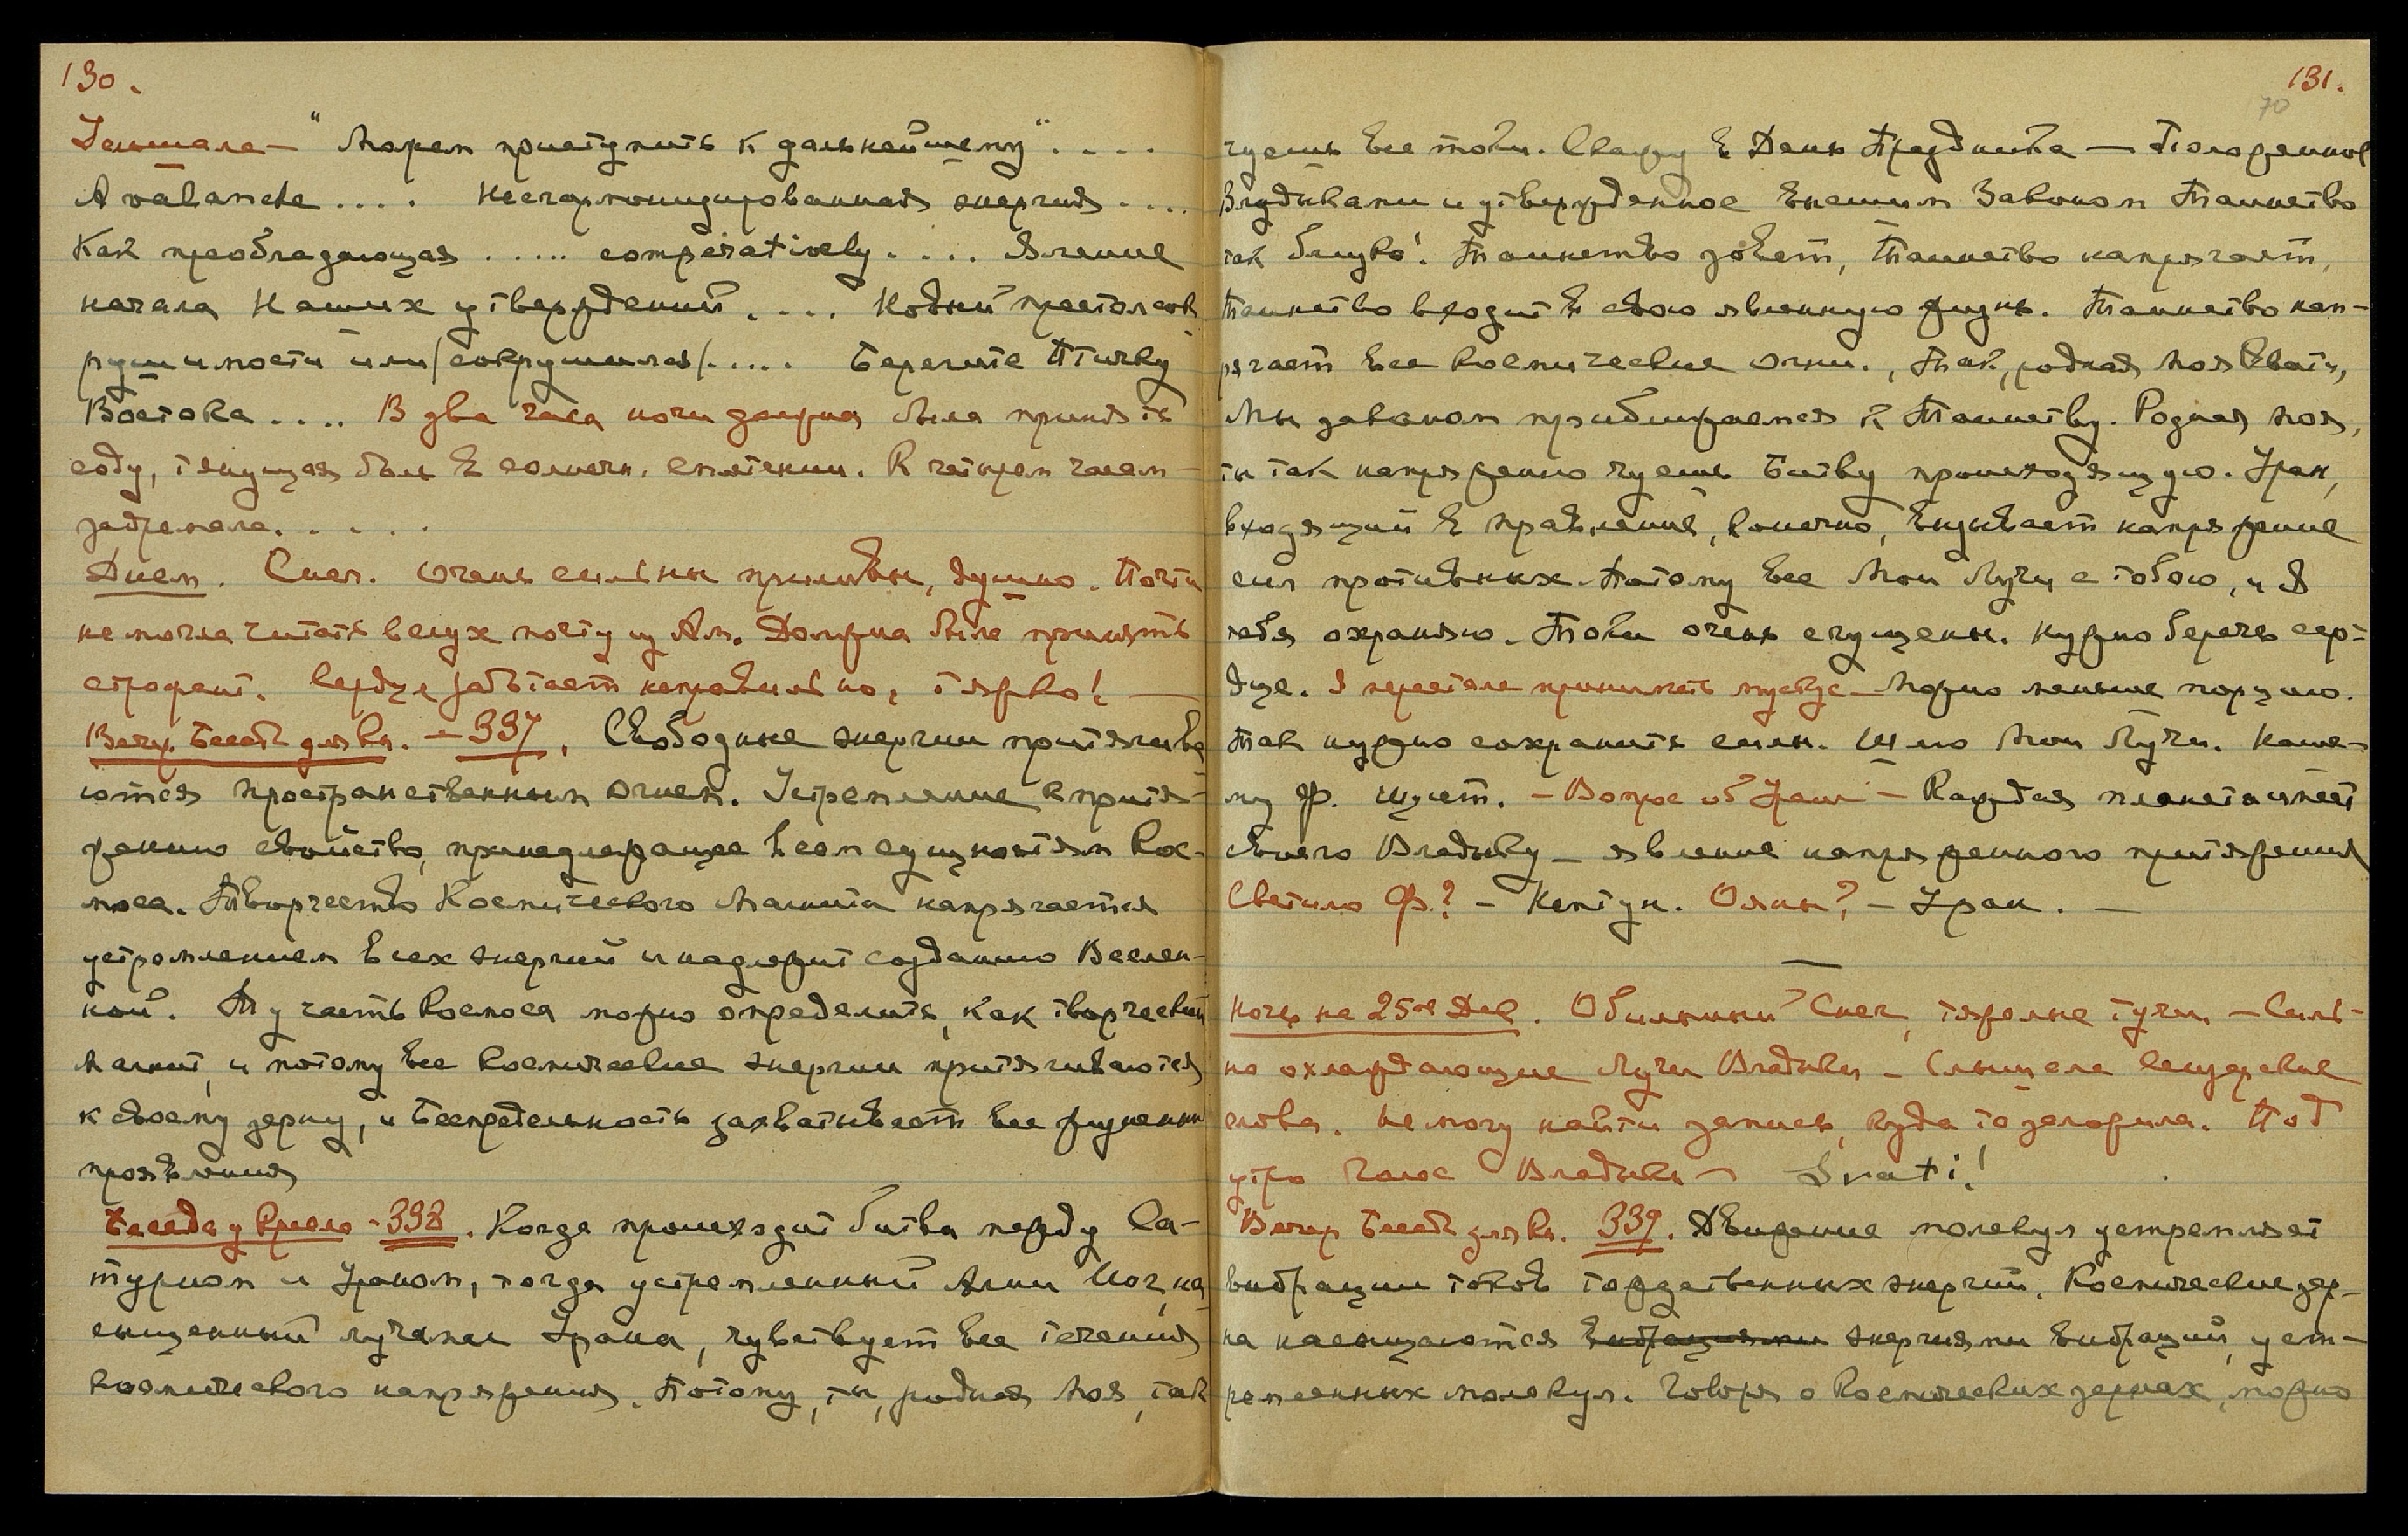 130.
Услышала — "Можем приступить к дальнейшему" ....
Avalanche .... Несгармонизированная энергия ....
Как преобладающая ..... comperatively .... Явление
начала Наших утверждений .... Новый престол сок
рушимости или /сокрушился/ .... Берегите Птичку
Востока .... В два часа ночи должна была принять
соду, тянущая боль в солнечн. сплетении. К четырем часам
задремала. . . . .
Днем. Снег. Очень сильны приливы, душно. Почти
не могла читать вслух почту из Ам. Должна была принять
строфант. Сердце работает неправильно, тяжко! —
Веч. Бесед. для Кн. — 337. Свободные энергии притягива
ются пространственным огнем. Устремление к притя-
жению свойство, принадлежащее всем сущностям Кос-
моса. Творчество Космического Магнита напрягается
устремлением всех энергий и надлежит созданию Вселен-
ной. Ту часть Космоса можно определить, как творческий
Магнит, и потому все Космические энергии притягиваются
к своему зерну, и Беспредельность захватывает все жизненны
проявления
Беседа у Кресло — 338. Когда происходит битва между Са-
турном и Ураном, тогда устремленный Агни Иог, на
сыщенный лучами Урана, чувствует все течения
космического напряжения. Потому, ты, родная Моя, так
131.
70
чуешь все токи. Скажу в День Праздника — Положенное
Владыками и утвержденное Высшим Законом Таинство
так близко! Таинство зовет, Таинство напрягает,
Таинство входит в свою явленную жизнь. Таинство нап-
рягает все космические огни. Так, родная Моя Свати,
Мы законом приближаемся к Таинству. Родная Моя,
ты так напряженно чуешь Битву происходящую. Уран,
входящий в правление, конечно, вызывает напряжение
сил противных. Потому все Мои Лучи с тобою, и Я
тебя охраняю. Токи очень сгущены. Нужно беречь сер-
дце. Я перестала принимать мускус — Можно меньше порцию.
Так нужно сохранить силы. Шлю Мои Лучи. Наше-
му Ф. шлет. — Вопрос об Уране — Каждая планета имеет
своего Владыку — явление напряженного притяжения
Светило Ф.? — Нептун. Ояны? — Уран. —
—
Ночь на 25ое Дек. Обильный Снег, тяжелые тучи — Силь-
но охлаждающие Лучи Владыки — Слышала сензарские
слова. Не могу найти запись, куда то заложила. Под
утро Голос Владыки — Svati!
Вечер Бесед. для Кн. 339. Движение молекул устремляет
вибрации токов тождественных энергий. Космические зер-
на насыщаются вибрациями энергиями вибраций, уст-
ремленных молекул. Говоря о Космических зернах, можно